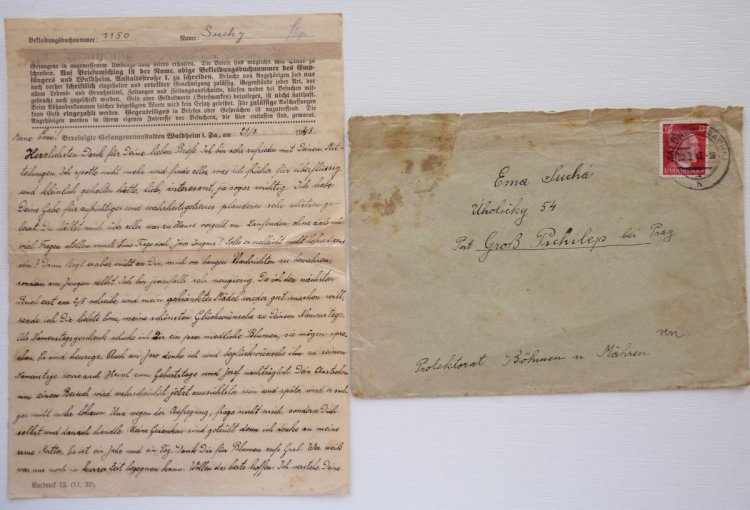 Bekleidungsbuchnummer: 1150 Name Suchy
Gefangene in angemessenem Umfange und erhalten. Die Briefe sind möglichst mit Tinte zu
schreiben. Auf Briefumschlag ist der Name, obige Bekleidungsbuchnummer des Emp-
fängers und Waldheim, Anstaltsstraße 1, zu schreiben. Besuche von Angehörigen sind nur
nach vorher schriftlich eingeholter und erteilter Genehmigung zulässig. Gegenstände jeder Art, vor
allem Lebens- und Genußmittel, Zeitungen und Zeitungsausschnitte, dürfen weder bei Besuchen mit-
gebracht noch zugeschickt werden. Geld oder Geldeswert (Briefmarken) beizulegen, ist nicht statthaft.
Beim Abhandenkommen solcher beigelegten Werte wird kein Ersatz geleistet. Für zulässige Anschaffungen
kann Geld eingezahlt werden. Gegenteiliges in Briefen oder Gesprächen ist unzutreffend. Die
Angehörigen werden in ihrem eigenen Interesse vor Besuchern, die hier entlassen sind, gewarnt.
Vereinigte Gefangenenanstalten Waldheim i. Sa., am 21/3. 1943.
Herzlichsten Dank für Deine lieben Briefe. Ich bin sehr zufrieden mit Deinen Mit-
teilungen. Ich spotte nicht mehr und finde alles, was ich früher für überflüssig
und kleinlich gehalten hätte, lieb, interesant, ja sogar wichtig. Ich habe
Deine Gabe für aufrichtiges und wahrheitsgetreues plaudern sehr schätzen ge-
lernt. Du hältst mich über alles was zu Hause vorgeht im Laufenden, ohne dass ich
viel fragen müsste. Eine Frage doch,
sein? Dann liegt es aber nicht an Dir, mich vor bangen Nachrichten zu bewahren,
sondern am Jungen selbst. Ich bin jedenfalls sehr neugierig. Da ich den nächsten
Brief erst am 2/5 schreibe und mein gekränktes Mädel wieder gut machen will,
sende ich Dir liebste Ema, meine schönsten Glückwünsche zu Deinem Namenstage.
Als Namenstagsgeschenk schicke ich Dir ein paar niedliche Blumen, sie mögen spre-
chen. Es sind heurige. Auch an Jar denke ich und beglückwünsche ihn zu seinem
Namenstage sowie auch Heinl zum Geburtstage und Josef nachträglich. Dein Ansuchen
um einen Besuch wird wahrscheinlich jetzt aussichtslos sein und später wird es sich
gar nicht mehr lohnen. Und wegen der Aufregung, frage nicht mich, sondern Dich
selbst und danach handle. Meine Gedanken sind getrübt denn ich denke an meine
arme Mutter. Es ist ein Jahr und ein Tag. Dank Dir für Blumen aufs Grab. Wer weiß
was uns noch in kurzer Zeit begegnen kann. Wollen das beste hoffen. Ich verstehe Deine
Vordruck 13. (11. 32).
Ema Suchá
Uholičky 54
Post Groß Pschilep bei Prag
Protektorat Böhmen u Mähren